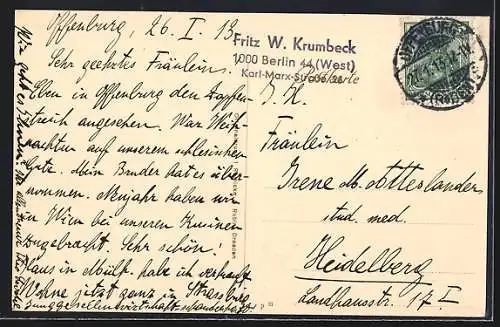 Offenburg, 26. I. 13.
Sehr geehrtes Fräulein.
Eben in Offenburg den Zapfen-
streich angesehen. War Weih-
nachten auf unserem schlesischen
Gute. Mein Bruder hat es über-
nommen. Neujahr haben wir
in Wien bei unseren Kusinen
zugebracht. Sehr schön!
Haus in Mülh. habe ich verkauft
Wohne jetzt ganz in Strassburg
Junggesellenwirtschaft
Wie geht es Ihnen?
Fritz W. Krumbeck
1000 Berlin 44 (West)
Karl-Marx-Straße
OFFENBURG
Dresden
Fräulein
Irene M. Atteslander
stud. med.
Heidelberg
Landhausstr. 17 I